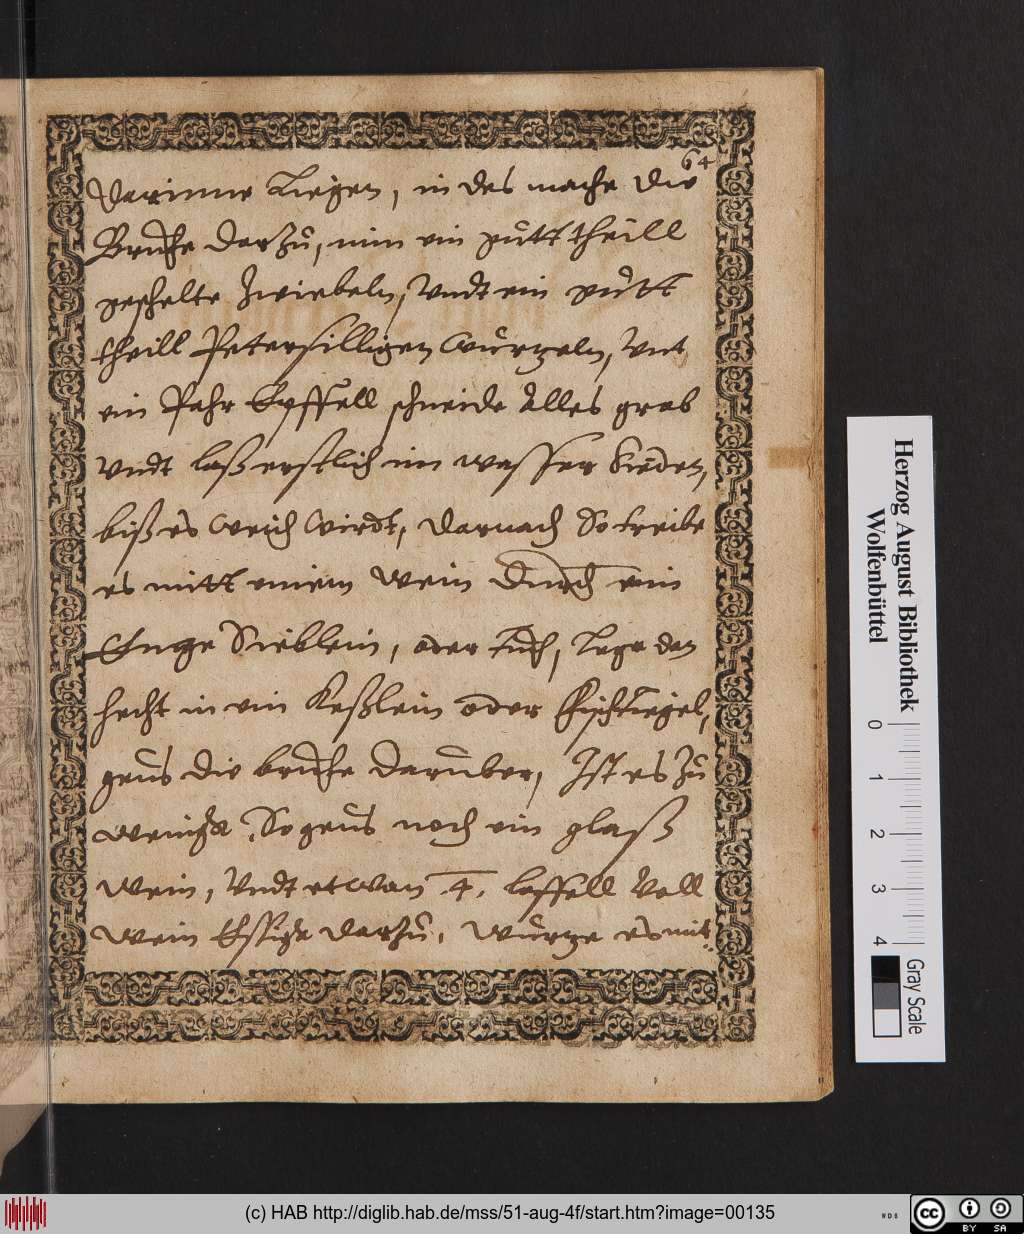 64
darinne Liegen, in des mache die
Bruhe darzu, nim ein gutt theill
geschelte Zwiebeln, Undt ein gutt
theill Petersilligen wurtzeln, Unt
ein Pahr Epffell schneide Alles grob
Undt laß erstlich im wasser Sieden,
biß es weich wirdt, darnach So treibe
es mitt einem Wein durch ein
Enge Sieblein, oder tuch, Lege den
hecht in ein Keßlein oder Fischtiegel,
geus die bruhe daruber, Ist es Zu
wenigk, So geus noch ein glaß
Wein, Undt etwan .4. leffell Voll
Wein Essigk darzu, Wurtze es mit
Herzog August Bibliothek
Wolfenbüttel
0 1 2 3 4
Gray Scale
(c) HAB http://diglib.hab.de/mss/51-aug-4f/start.htm?image=00135
WDB
cc BY SA